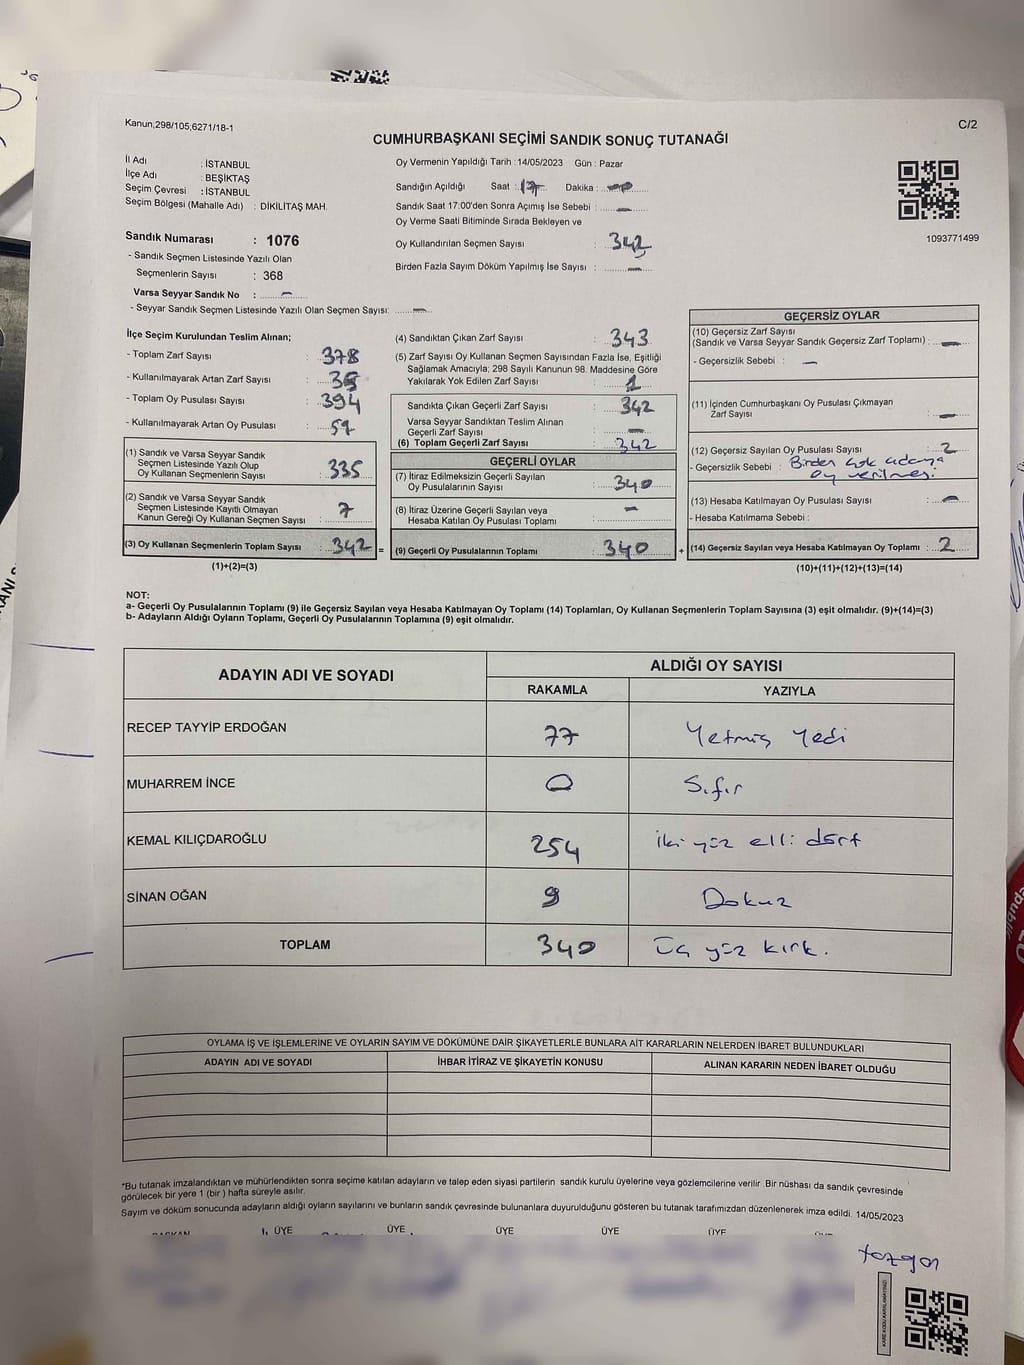 Kanun;298/105;6271/18-1
C/2
CUMHURBAŞKANI SEÇİMİ SANDIK SONUÇ TUTANAĞI
İl Adı : İSTANBUL
İlçe Adı : BEŞİKTAŞ
Seçim Çevresi : İSTANBUL
Seçim Bölgesi (Mahalle Adı) : DİKİLİTAŞ MAH.
Sandık Numarası : 1076
- Sandık Seçmen Listesinde Yazılı Olan
Seçmenlerin Sayısı : 368
Varsa Seyyar Sandık No : —
- Seyyar Sandık Seçmen Listesinde Yazılı Olan Seçmen Sayısı: —
Oy Vermenin Yapıldığı Tarih : 14/05/2023 Gün : Pazar
Sandığın Açıldığı Saat : 17 Dakika :
Sandık Saat 17:00'den Sonra Açımış İse Sebebi : —
Oy Verme Saati Bitiminde Sırada Bekleyen ve
Oy Kullandırılan Seçmen Sayısı : 342
Birden Fazla Sayım Döküm Yapılmış İse Sayısı : —
1093771499
İlçe Seçim Kurulundan Teslim Alınan;
- Toplam Zarf Sayısı : 378
- Kullanılmayarak Artan Zarf Sayısı : 35
- Toplam Oy Pusulası Sayısı : 394
- Kullanılmayarak Artan Oy Pusulası :
(1) Sandık ve Varsa Seyyar Sandık
Seçmen Listesinde Yazılı Olup
Oy Kullanan Seçmenlerin Sayısı : 335
(2) Sandık ve Varsa Seyyar Sandık
Seçmen Listesinde Kayıtlı Olmayan
Kanun Gereği Oy Kullanan Seçmen Sayısı : 7
(3) Oy Kullanan Seçmenlerin Toplam Sayısı : 342
(1)+(2)=(3)
=
(4) Sandıktan Çıkan Zarf Sayısı : 343
(5) Zarf Sayısı Oy Kullanan Seçmen Sayısından Fazla İse, Eşitliği
Sağlamak Amacıyla; 298 Sayılı Kanunun 98. Maddesine Göre
Yakılarak Yok Edilen Zarf Sayısı : 1
Sandıkta Çıkan Geçerli Zarf Sayısı : 342
Varsa Seyyar Sandıktan Teslim Alınan
Geçerli Zarf Sayısı : —
(6) Toplam Geçerli Zarf Sayısı : 342
GEÇERLİ OYLAR
(7) İtiraz Edilmeksizin Geçerli Sayılan
Oy Pusulalarının Sayısı : 340
(8) İtiraz Üzerine Geçerli Sayılan veya
Hesaba Katılan Oy Pusulası Toplamı : —
(9) Geçerli Oy Pusulalarının Toplamı : 340
+
GEÇERSİZ OYLAR
(10) Geçersiz Zarf Sayısı
(Sandık ve Varsa Seyyar Sandık Geçersiz Zarf Toplamı) : —
- Geçersizlik Sebebi : —
(11) İçinden Cumhurbaşkanı Oy Pusulası Çıkmayan
Zarf Sayısı : —
(12) Geçersiz Sayılan Oy Pusulası Sayısı : 2
- Geçersizlik Sebebi : Birden çok adaya
oy verilmesi
(13) Hesaba Katılmayan Oy Pusulası Sayısı : —
- Hesaba Katılmama Sebebi :
(14) Geçersiz Sayılan veya Hesaba Katılmayan Oy Toplamı : 2
(10)+(11)+(12)+(13)=(14)
NOT:
a- Geçerli Oy Pusulalarının Toplamı (9) ile Geçersiz Sayılan veya Hesaba Katılmayan Oy Toplamı (14) Toplamları, Oy Kullanan Seçmenlerin Toplam Sayısına (3) eşit olmalıdır. (9)+(14)=(3)
b- Adayların Aldığı Oyların Toplamı, Geçerli Oy Pusulalarının Toplamına (9) eşit olmalıdır.
ADAYIN ADI VE SOYADI
ALDIĞI OY SAYISI
RAKAMLA YAZIYLA
RECEP TAYYİP ERDOĞAN 77 Yetmiş Yedi
MUHARREM İNCE 0 Sıfır
KEMAL KILIÇDAROĞLU 254 iki yüz elli dört
SİNAN OĞAN 9 Dokuz
TOPLAM 340 Üç yüz kırk.
OYLAMA İŞ VE İŞLEMLERİNE VE OYLARIN SAYIM VE DÖKÜMÜNE DAİR ŞİKAYETLERLE BUNLARA AİT KARARLARIN NELERDEN İBARET BULUNDUKLARI
ADAYIN ADI VE SOYADI İHBAR İTİRAZ VE ŞİKAYETİN KONUSU ALINAN KARARIN NEDEN İBARET OLDUĞU
*Bu tutanak imzalandıktan ve mühürlendikten sonra seçime katılan adayların ve talep eden siyasi partilerin sandık kurulu üyelerine veya gözlemcilerine verilir. Bir nüshası da sandık çevresinde
görülecek bir yere 1 (bir) hafta süreyle asılır.
Sayım ve döküm sonucunda adayların aldığı oyların sayılarını ve bunların sandık çevresinde bulunanlara duyurulduğunu gösteren bu tutanak tarafımızdan düzenlenerek imza edildi. 14/05/2023
BAŞKAN ÜYE ÜYE ÜYE ÜYE ÜYE